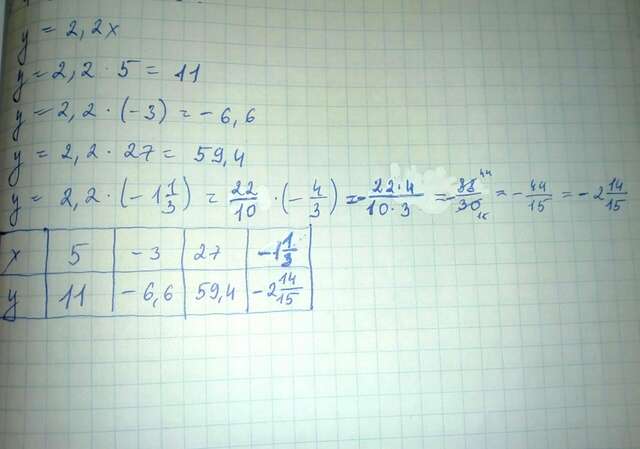 y = 2,2x
y = 2,2 · 5 = 11
y = 2,2 · (-3) = -6,6
y = 2,2 · 27 = 59,4
y = 2,2 · (-1 1/3) = 22/10 · (-4/3) = -22·4/10·3 = -88 44/30 15 = -44/15 = -2 14/15
x 5 -3 27 -1 1/3
y 11 -6,6 59,4 -2 14/15